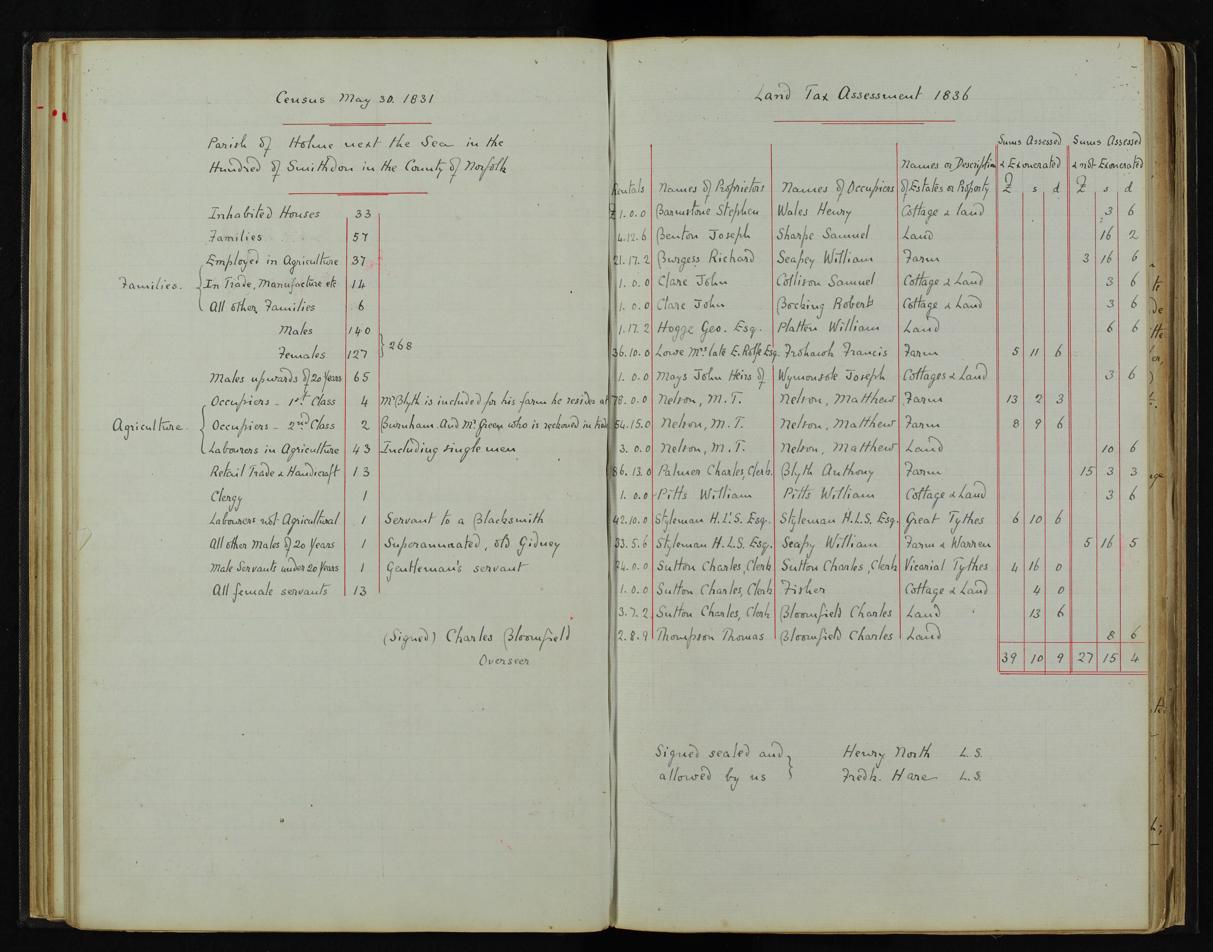 Census May 30. 1831
Parish of Holme next the Sea in the
Hundred of Smithdon in the County of Norfolk
Inhabited Houses 33
Families 57
Employed in Agriculture 37
Families. { In Trade, Manufacture etc 14
All other Families 6
Males 140
} 268
Females 127
Males upwards of 20 Years 65
Occupiers - 1st Class 4 Mr Blyth is included for his farm he resides at
Agriculture. { Occupiers - 2nd Class 2 Burnham. And Mr Green who is reckoned in trade
Labourers in Agriculture 43 Including single men
Retail Trade & Handicraft 13
Clergy 1
Labourers not Agricultural 1 Servant to a Blacksmith
All other Males of 20 Years 1 Superannuated, old Gidney
Male Servants under 20 Years 1 Gentleman's servant
All female servants 13
(Signed) Charles Bloomfield
Overseer
Land Tax Assessment 1836
Sums Assessed Sums Assessed
Names or Description & Exonerated & not Exonerated
Rentals Names of Proprietors Names of Occupiers of Estates or Property £ s d £ s d
£1.0.0 Barnstone Stephen Wales Henry Cottage & land 3 6
4.12.6 Benton Joseph Sharpe Samuel Land 16 2
21.17.2 Burgess Richard Seapey William Farm 3 16 6
1.0.0 Clare John Collison Samuel Cottage & Land 3 6
1.0.0 Clare John Bocking Robert Cottage & Land 3 6
1.17.2 Hogge Geo. Esq. Platton William Land 6 6
36.10.0 Lowe Mrs late E. Rolfe Esq. Frohawk Francis Farm 5 11 6
1.0.0 Mays John Heirs of Joseph Cottages & Land 3 6
78.0.0 Nelson, M.T. Nelson, Matthew Farm 13 2 3
54.15.0 Nelson, M.T. Nelson, Matthew Farm 8 9 6
3.0.0 Nelson, M.T. Nelson, Matthew Land 10 6
86.13.0 Palmer Charles, Clerk. Blyth Anthony Farm 15 3 3
1.0.0 Pitts William Pitts William Cottage & Land 3 6
42.10.0 Styleman H.L'.S. Esq. Styleman H.L.S. Esq. Great Tythes 6 10 6
33.5.6 Styleman H.L.S. Esq. Seapy William Farm & Warren 5 16 5
24.0.0 Sutton Charles, Clerk Sutton Charles, Clerk Vicarial Tythes 4 16 0
1.0.0 Sutton Charles, Clerk Fisher Cottage & Land 4 0
3.7.2 Sutton Charles, Clerk Bloomfield Charles Land 13 6
2.8.9 Thompson Thomas Bloomfield Charles Land 8 6
39 10 9 27 15 4
Signed sealed and } Henry North L.S.
allowed by us Fredk. Hare L.S.